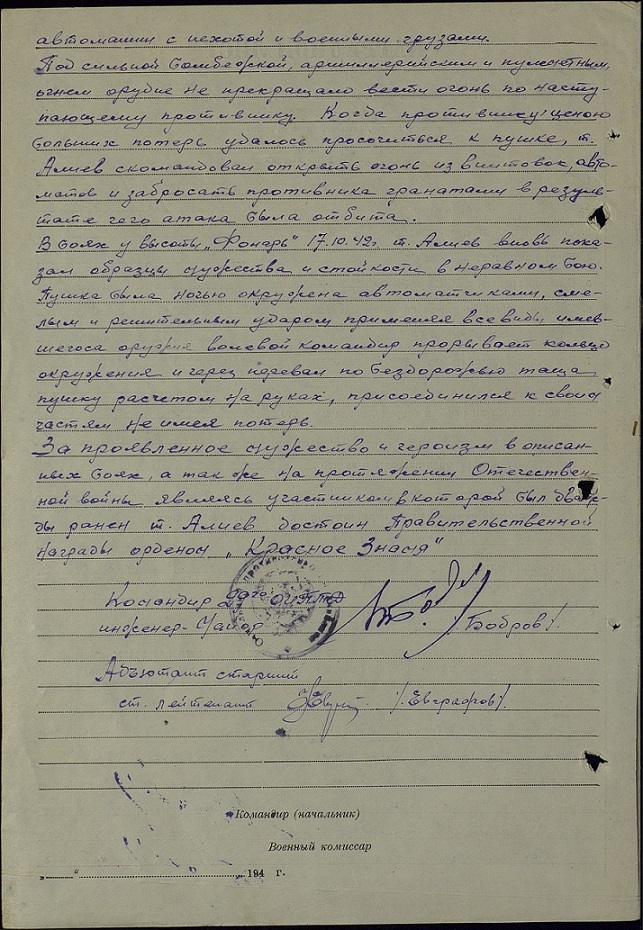 автомашин с пехотой и военными грузами.
Под сильной бомбежкой, артиллерийским и пулеметным,
огнем орудие не прекращало вести огонь по насту-
пающему противнику. Когда противнику ценою
больших потерь удалось просочиться к пушке, т.
Алиев скомандовал открыть огонь из винтовок, авто-
матов и забросать противника гранатами в резуль-
тате чего атака была отбита.
В боях у высоты „Фонарь" 17.10.42г. т. Алиев вновь пока-
зал образцы мужества и стойкости в неравном бою.
Пушка была ночью окружена автоматчиками, сме-
лым и решительным ударом применяя все виды имев-
шегося оружия волевой командир прорывает кольцо
окружения и через перевал по бездорожью таща
пушку расчетом на руках, присоединился к своим
частям не имея потерь.
За проявленное мужество и героизм в описан-
ных боях, а так же на протяжении Отечествен-
ной войны являясь участником в которой был дваж-
ды ранен т. Алиев достоин Правительственной
награды орденом „Красное Знамя"
Командир ОИПТД
инженер-майор /Бобров/.
Адъютант старший
ст. лейтенант /Евграфов/.
Командир (начальник)
Военный комиссар
„ " 194 г.